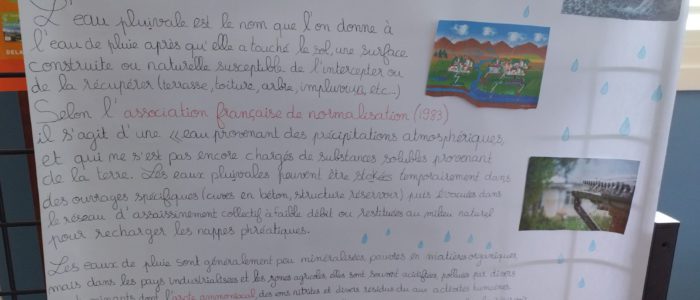 L'eau pluivale est le nom que l'on donne à
l'eau de pluie après qu'elle a touché le sol, une surface
construite ou naturelle susceptible de l'intercepter ou
de la récupérer (terrasse, toiture, arbre, impluvium, etc...)
Selon l'association française de normalisation (1983)
il s'agit d'une « eau provenant des précipitations atmosphériques,
et qui ne s'est pas encore chargés de substances solubles provenant
de la terre. Les eaux pluivales peuvent être stokées temporairement dans
des ouvrages spécifiques (cuves en béton, structure réservoir) puis évacuées dans
le réseau d'assainissement collectif à faible débit ou restituées au milieu naturel
pour recharger les nappes phréatiques.
Les eaux de pluie sont généralement peu minéralisées, pauvres en matières organiques
mais dans les pays industrialisées et les zones agricoles, elles sont souvent acidifiées, polluées par divers
dont l'azote ammoniacal des ions nitrates et divers résidus du aux activités humaines